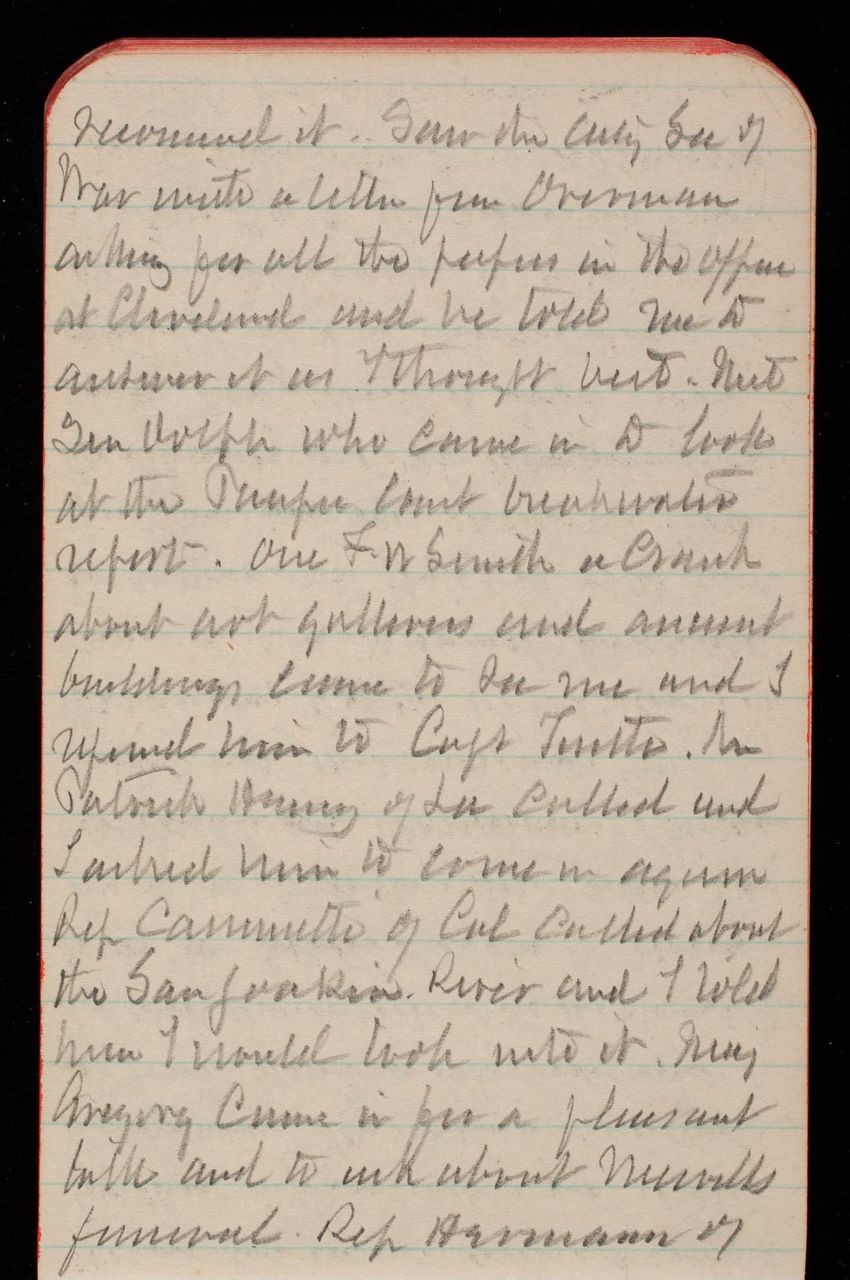 recommend it. Saw the Actg Sec of
War with a letter from Overman
asking for all the papers in the office
at Cleveland and he told me to
answer it as I thought best. Met
Sen Dolph who came in to look
at the Pacific Coast breakwater
report. One F. W Smith a Crank
about art galleries and ancient
buildings came to see me and I
referred him to Capt Tuttle. Mr
Patrick Henry of La called and
I asked him to come in again
Rep Caminetti of Cal called about
the San Joakin River and I told
him I would look into it. Maj
Gregory came in for a pleasant
talk and to ask about
funeral. Rep Hermann of